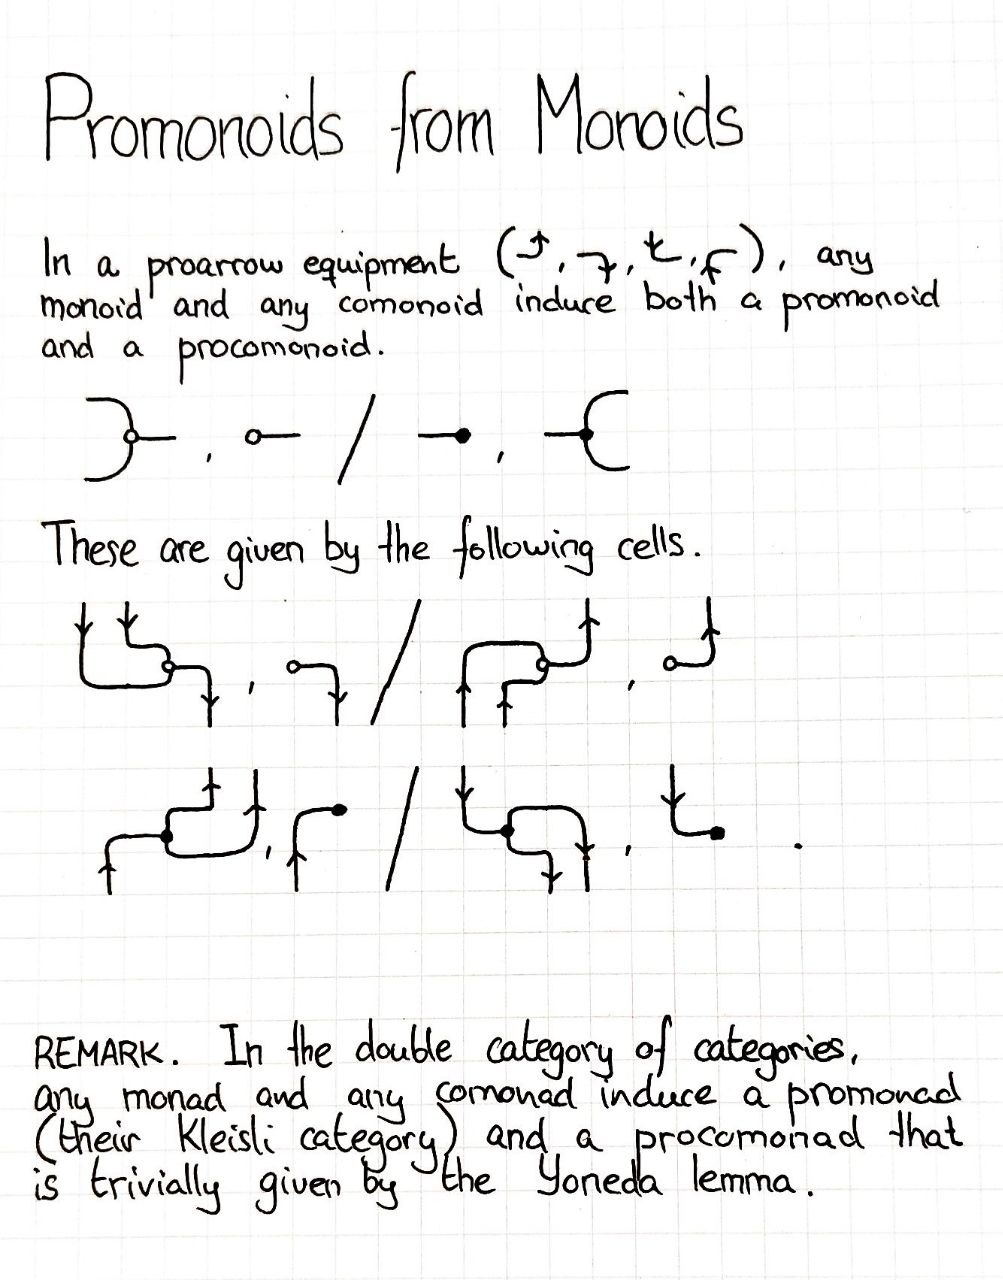 Promonoids from Monoids
In a proarrow equipment ( , , , ), any
monoid and any comonoid induce both a promonoid
and a procomonoid.
, / ,
These are given by the following cells.
, / ,
, / , .
REMARK. In the double category of categories,
any monad and any comonad induce a promonad
(their Kleisli category) and a procomonad that
is trivially given by the Yoneda lemma.